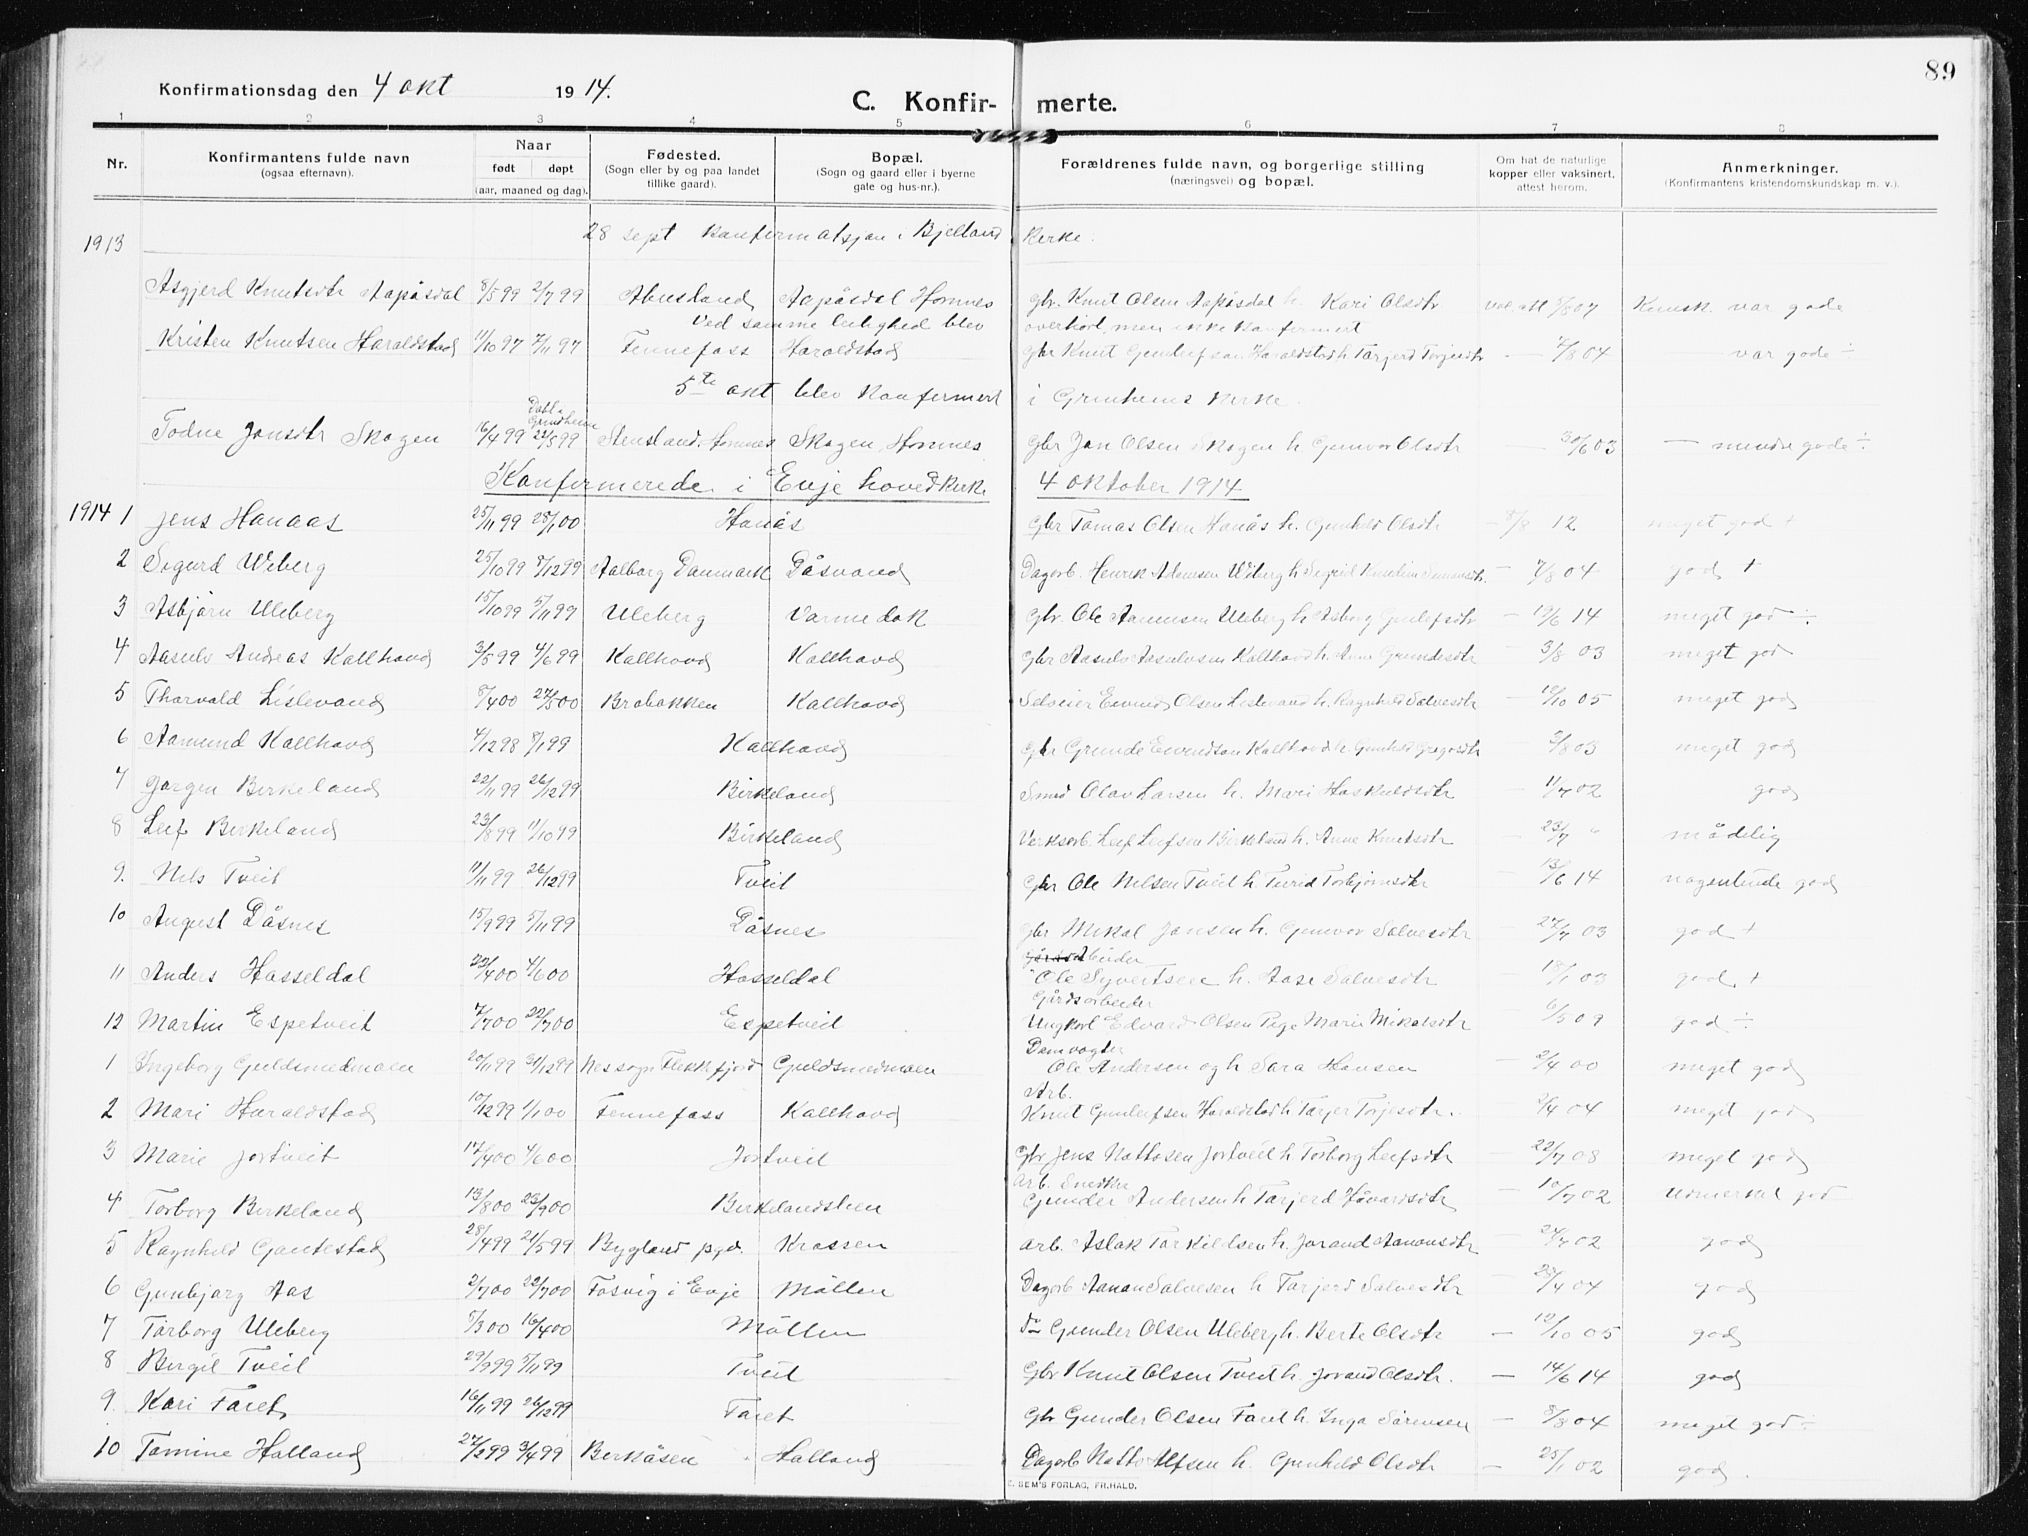 89
Konfirmationsdag den 4 okt 1914.
C. Konfir- merte.
1 2 3 4 5 6 7 8
Nr. Konfirmantens fulde navn (ogsaa efternavn). Naar født døpt (aar, maaned og dag). Fødested. (Sogn eller by og paa landet tillike gaard). Bopæl. (Sogn og gaard eller i byerne gate og hus-nr.). Forældrenes fulde navn, og borgerlige stilling (næringsvei) og bopæl. Om hat de naturlige kopper eller vaksinert, attest herom. Anmerkninger. (Konfirmantens kristendomskundskap m. v.).
1913 28 sept konfirmatsjon i Bjelland Kirke.
Asgjerd Knutsdtr Aapåsdal 8/5 99 2/7 99 Abusland Aapåsdal Homnes gbr. Knut Olsen Aapåsdal h. Kari Olsdtr 07 Kunsk. var gode
Ved samme leilighed blev overhört, men ikke konfirmert
Kristen Knutsen Haraldstad 11/10 97 7/11 97 Fennefoss Haraldstad gbr Knut Gunleifsen Haraldstad h Tarjerd Torjesdtr — 4/8 04 var gode ÷
5te okt blev konfermert i Grinheims Kirke.
Todne Jonsdtr Skogen 16/4 99 22/5 99 Stensland, Homnes Skogen, Homnes gbr Jon Olsen Skogen h Gunvor Olsdtr — 30/6 03 — mindre gode ÷
Konfirmerede i Evje hovedkirke 4 oktober 1914
1914 1 Jens Hanaas 25/11 99 28/1 00 Hanås gbr Tomas Olsen Hanås h. Gunhild Olsdtr — 8/8 12 meget god +
2 Sigurd Wiberg 25/10 99 8/12 99 Aalborg Danmark Dåsvand Dagarb. Henrik Adamsen Wiberg h Sigrid — 7/8 04 god +
3 Asbjörn Uleberg 15/10 99 5/11 99 Uleberg Varmedok gbr. Ole Aanensen Uleberg h Asborg Gunleifsdtr — 19/6 14 meget god ÷
4 Aasulv Andreas Kallhovd 3/5 99 4/6 99 Kallhovd Kallhovd gbr Aasulv Aasulvsen Kallhovd h. Anne Grundesdtr — 3/8 03 meget god
5 Thorvald Lislevand 8/4 00 27/5 00 Brobakken Kallhovd Selveier Eivind Olsen Lislevand h. Ragnhild Salvesdtr — 19/10 05 meget god
6 Aamund Kallhovd 4/12 98 8/1 99 Kallhovd gbr Grunde Eivindsen Kallhovd h. Gunhild Gregarsdtr — 3/8 03 meget god
7 Jorgen Birkeland 22/11 99 26/12 99 Birkeland Smed Olav Larsen h. Mari Haskuldsdtr — 11/7 02 god
8 Leif Birkeland 23/8 99 1/10 99 Birkeland Verksarb. Leif Leifsen Birkeland h. Anne Knutsdtr — 23/7 " mådelig
9. Nils Tveit 12/11 99 26/12 99 Tveit Gbr Ole Nilsen Tveit h. Turid Torbjörnsdtr — 13/6 14 nogenlunde god
10 August Dåsnes 15/9 99 5/11 99 Dåsnes gbr Mikal Jansen h. Gunvor Salvesdtr — 27/7 03 god +
11 Anders Hasseldal 22/4 00 4/6 00 Hasseldal Arbeider Ole Syvertsen h. Aase Salvesdtr — 18/1 03 god +
12 Martin Espetveit 4/7 00 22/7 00 Espetveit Gårdsarbeider Ungkarl Edvard Olsen Pige Marie Mikalsdtr — 6/5 09 god ÷
1 Ingeborg Guldsmedmoen 20/11 99 31/12 99 Nes sogn Flekkefjord Guldsmedmoen Damvogter Ole Andersen og h Sara Hansen — 2/4 00 meget god
2 Mari Haraldstad 10/12 99 1/1 00 Fennefoss Kallhovd Arb. Knut Gunleifsen Haraldstad h Tarjer Torjesdtr. — 2/4 04 meget god
3 Marie Jortveit 17/4 00 4/6 00 Jortveit Gbr Jens Nattosen Jortveit h Torborg Leifsdtr — 22/7 08 meget god
4 Torborg Birkeland 13/8 00 23/9 00 Birkelandslien arb. Snedker Gunder Andersen h. Tarjerd Håvardsdtr — 10/7 02 udmerket god
5 Ragnhild Gautestad 28/4 99 21/5 99 Bygland pgd. Krossen arb. Aslak Tarkildsen h. Jorand Aanonsdtr — 27/7 02 god
6 Gunbjörg Aas 2/7 00 22/7 00 Fosvig i Evje Möllen Dagarb Aanon Salvesen h Tarjerd Salvesdtr — 25/4 04 god
7 Torborg Uleberg 5/3 00 16/4 00 Möllen do Gunder Olsen Uleberg h. Berte Olsdtr — 12/10 05 god
8 Birgit Tveit 29/9 99 5/11 99 Tveit Gbr Knut Olsen Tveit h. Jorand Olsdtr. — 14/6 14 god
9. Kari Faret 16/11 99 26/12 99 Faret Gbr Gunder Olsen Faret h. Inga Sörensen — 8/8 04 meget god ÷
10 Tomine Halland 27/2 99 3/4 99 Berkåsen Halland Dagarb Natto Ulfsen h. Gunhild Olsdtr — 25/1 02 god.
E. SEM'S FORLAG, FR.HALD.